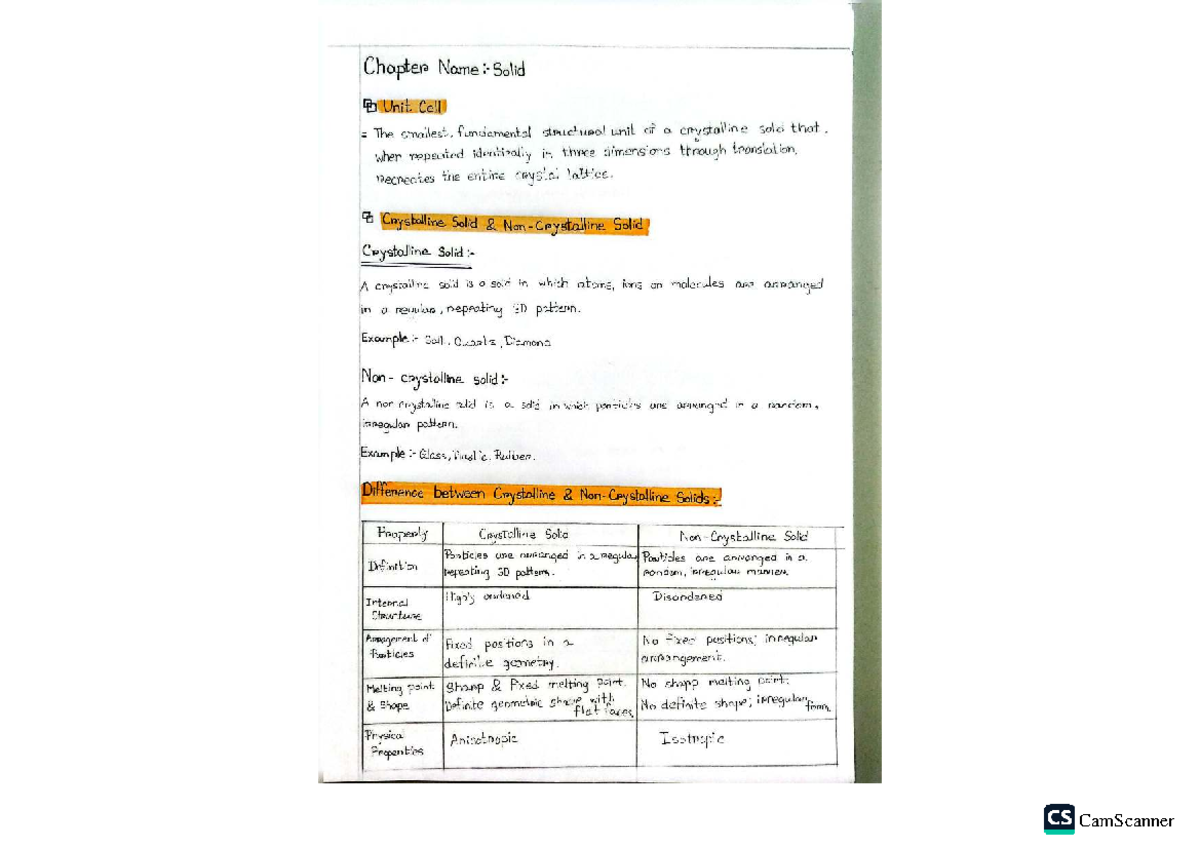 Chapter Name:- Solid
Unit Cell
= The smallest, fundamental structural unit of a crystalline solid that,
when repeated identically in three dimensions through translation,
recreates the entire crystal lattice.
Crystalline Solid & Non-Crystalline Solid
Crystalline Solid :-
A crystalline solid is a solid in which atoms, ions or molecules are arranged
in a regular, repeating 3D pattern.
Example :- Salt, Quartz, Diamond
Non- crystalline solid:-
A non crystalline solid is a solid in which particles are arranged in a random,
irregular pattern.
Example :- Glass, Plastic, Rubber.
Difference between Crystalline & Non-Crystalline Solids:-
Property Crystalline Solid Non-Crystalline Solid
Definition Particles are arranged in a regular repeating 3D pattern. Particles are arranged in a random, irregular manner.
Internal Structure Highly ordered Disordered
Arrangement of Particles Fixed positions in a definite geometry. No fixed positions; irregular arrangement.
Melting point & Shape Sharp & Fixed melting point. Definite geometric shape with flat faces No sharp melting point. No definite shape; irregular form
Physical Properties Anisotropic Isotropic
CS CamScanner